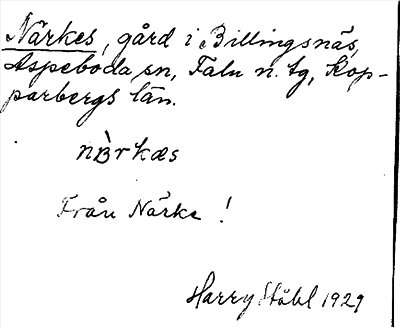 Närkes, gård i Billingsnäs,
Aspeboda sn, Falu n. tg, Kop-
parbergs län.
nàrkæs
Från Närke!
Harry Ståhl 1929